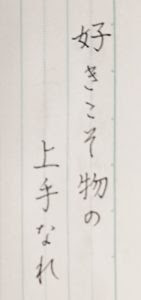 好きこそ物の
上手なれ